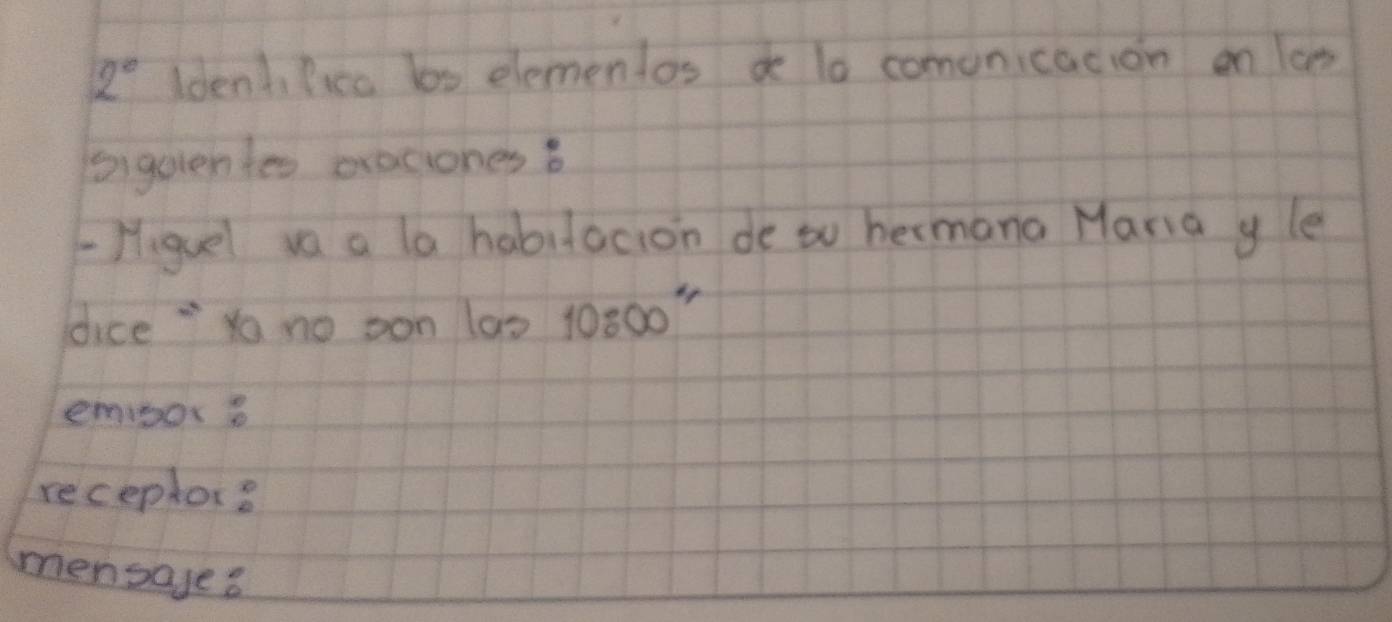 2° Identifica los elementos de la comunicación en las
siguientes oraciones:
- Miguel va a la habitación de su hermana Maria y le
dice "Ya no son las 10:00"
emisor:
receptor:
mensaje: